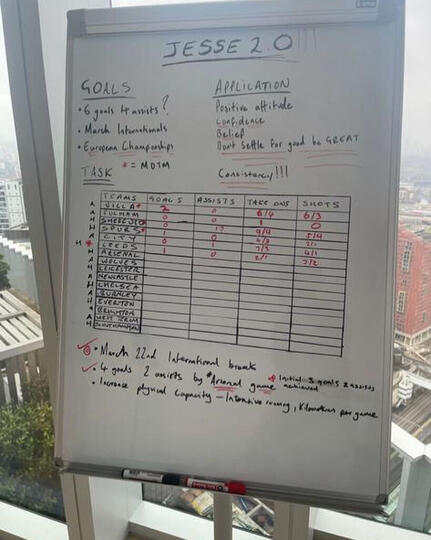 JESSE 2.0!!!
GOALS
• 6 goals 4 assists?
• March Internationals
• European Championships
* = MOTM
APPLICATION
Positive attitude
Confidence
Belief
Dont settle for good be GREAT
TASK
Consistency!!!
TEAMS GOALS ASSISTS TAKE ONS SHOTS
A VILLA* 2 0 6/4 6/3
A FULHAM 0 0
H SHEFF UTD 0
H SPURS* 1 9/4 0
A CITY 1 0 5/4
H * LEEDS 0 1
H ARSENAL 1 0 2/1 4/1
A WOLVES
H LEICESTER
A NEWCASTLE
H CHELSEA
A BURNLEY
H EVERTON
A BRIGHTON
A WEST BROM
H SOUTHAMPTON
• March 22nd International breaks
• 4 goals 2 assists by *Arsenal game
Initial 3 goals 2 assists achieved
• Increase physical capacity - Intensive running, Kilometres per game